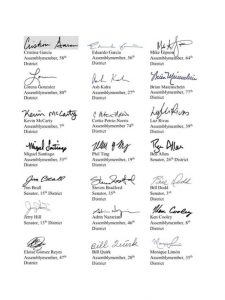 Cristina Garcia Eduardo Garcia Mike Gipson
Assemblymember, 58th Assemblymember, 56th Assemblymember, 64th
District District District
Lorena Gonzalez Ash Kalra Brian Maienschein
Assemblymember, 80th Assemblymember, 27th Assemblymember, 77th
District District District
Kevin McCarty
Kevin McCarty Cottie Petrie-Norris Luz Rivas
Assemblymember, 7th Assemblymember, 74th Assemblymember, 39th
District District District
Miguel Santiago Phil Ting Ben Allen
Assemblymember, 53rd Assemblymember, 19th Senator, 26th District
District District
Jim Beall Steven Bradford Bill Dodd
Senator, 15th District Senator, 35th District Senator, 3rd District
Ken Cooley
Jerry Hill Adrin Nazarian Ken Cooley
Senator, 13th District Assemblymember, 46th Assemblymember, 8th
District District
Bill Quirk
Eloise Gómez Reyes Bill Quirk Monique Limón
Assemblymember, 47th Assemblymember, 20th Assemblymember, 37th
District District District